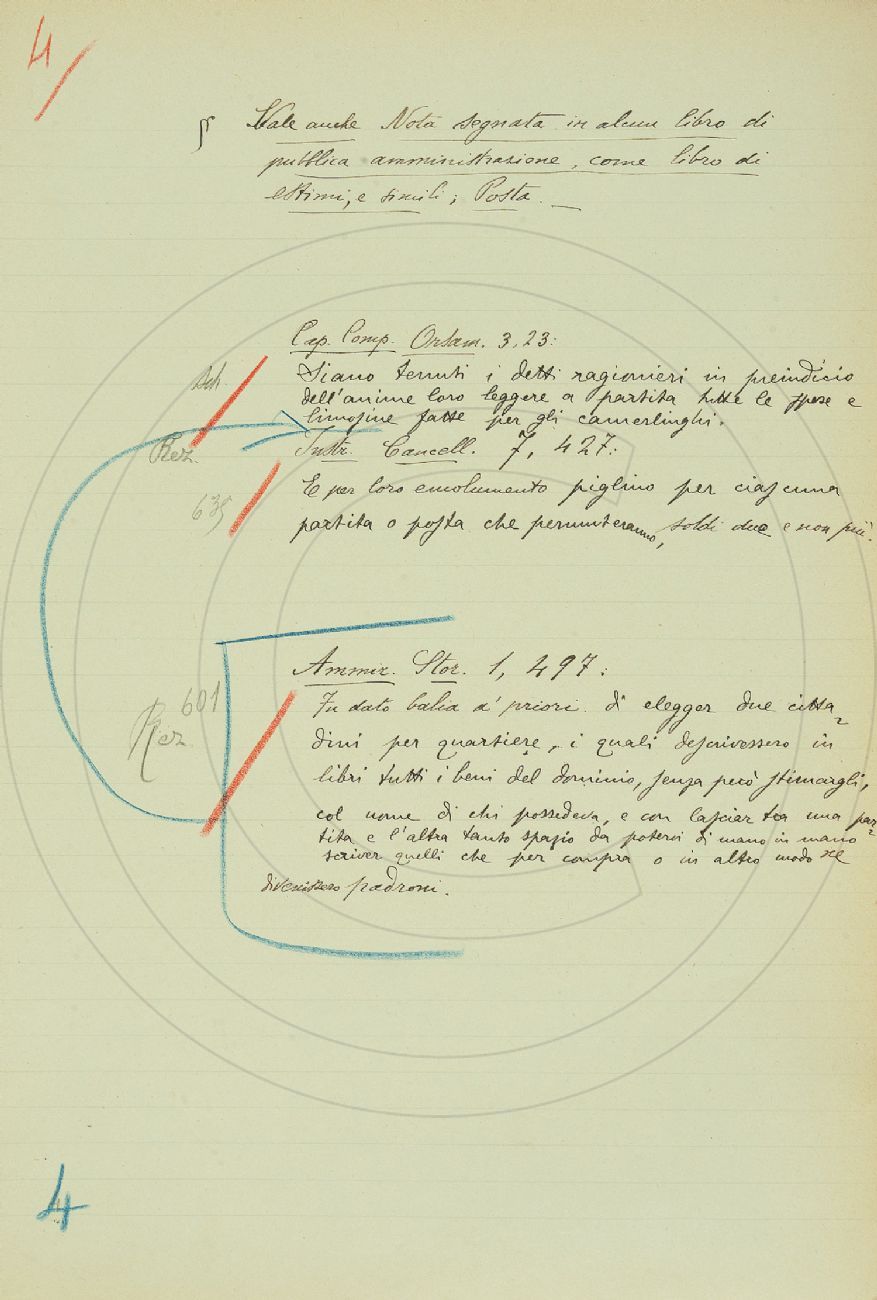 4
§ Vale anche Nota segnata in alcun libro di
pubblica amministrazione, come libro di
estimi, e simili; Posta. —
Cap. Comp. Orsam. 3, 23:
Siano tenuti i detti ragionieri in preiudicio
dell'anime loro leggere a partita tutte le spese e
limosine fatte per gli camerlinghi.
Rez.
Instr. Cancell. 7, 427:
635
E per loro emolumento piglino per ciascuna
partita o posta che permuteranno, soldi due e non più.
Ammir. Stor. 1, 497:
Rez 601
Fu dato balìa a' priori di elegger due citta=
dini per quartiere, i quali descrivessero in
libri tutti i beni del dominio, senza però stimargli,
col nome di chi possedeva, e con lasciar tra una par=
tita e l'altra tanto spazio da potervi di mano in mano
scriver quelli che per compra o in altro modo ne
divenissero padroni.
4